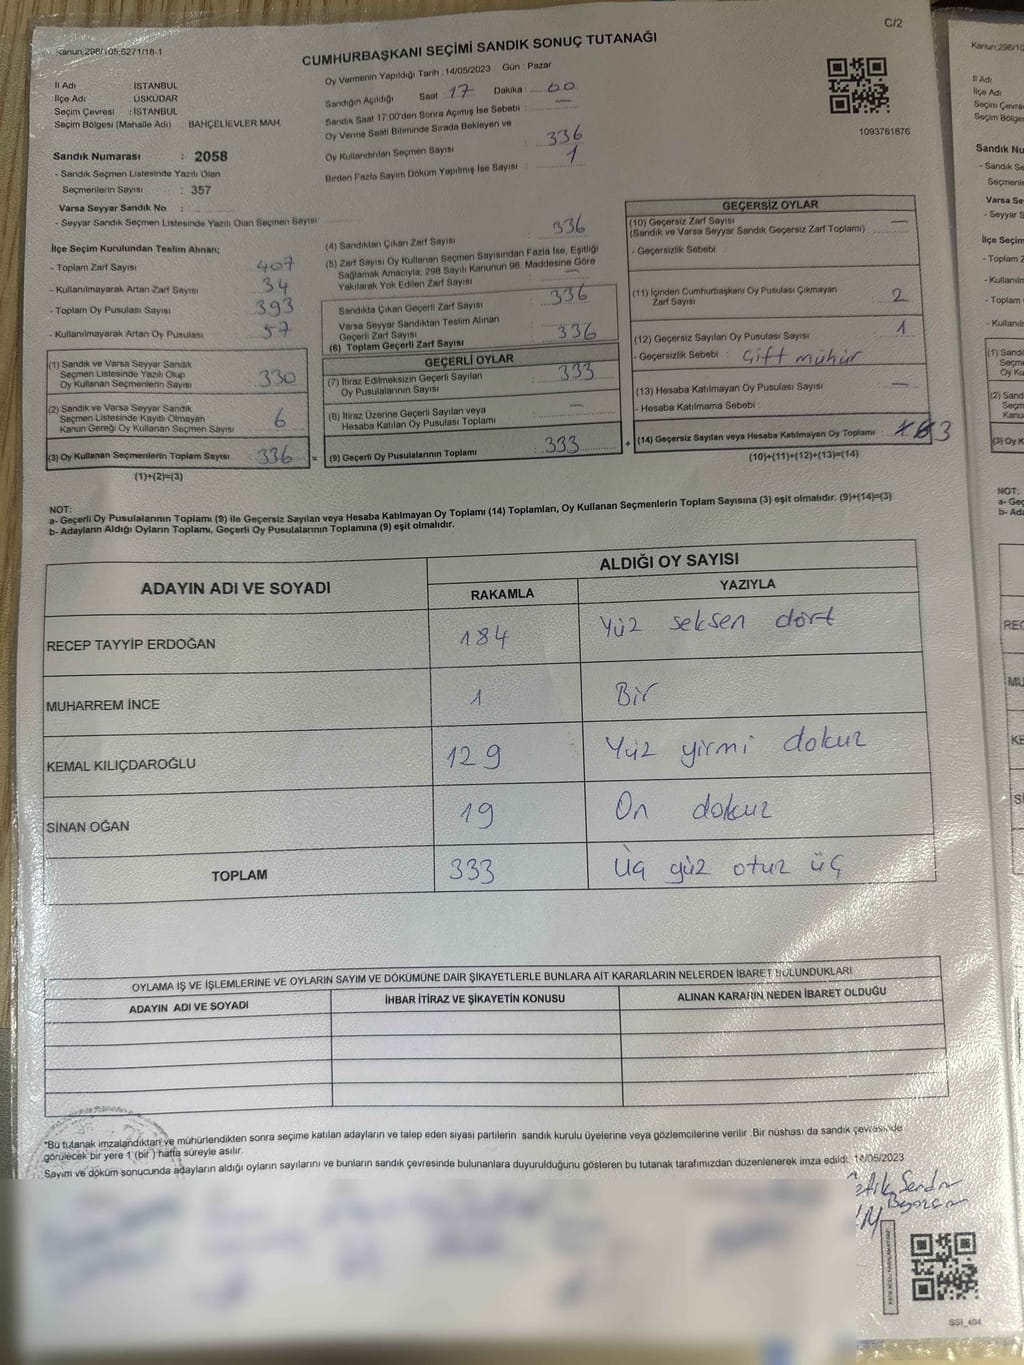 C/2
Kanun,298/105,6271/18-1
CUMHURBAŞKANI SEÇİMİ SANDIK SONUÇ TUTANAĞI
Oy Vermenin Yapıldığı Tarih :14/05/2023 Gün : Pazar
İl Adı : İSTANBUL
İlçe Adı : ÜSKÜDAR
Seçim Çevresi : İSTANBUL
Seçim Bölgesi (Mahalle Adı) : BAHÇELİEVLER MAH.
Sandık Numarası : 2058
- Sandık Seçmen Listesinde Yazılı Olan
Seçmenlerin Sayısı : 357
Varsa Seyyar Sandık No :
- Seyyar Sandık Seçmen Listesinde Yazılı Olan Seçmen Sayısı:
Sandığın Açıldığı Saat 17 Dakika : 00
Sandık Saat 17:00'den Sonra Açımış İse Sebebi : —
Oy Verme Saati Bitiminde Sırada Bekleyen ve
Oy Kullandırılan Seçmen Sayısı : 336
Birden Fazla Sayım Döküm Yapılmış İse Sayısı : 1
1093781876
İlçe Seçim Kurulundan Teslim Alınan;
- Toplam Zarf Sayısı : 407
- Kullanılmayarak Artan Zarf Sayısı : 34
- Toplam Oy Pusulası Sayısı : 393
- Kullanılmayarak Artan Oy Pusulası : 57
(1) Sandık ve Varsa Seyyar Sandık
Seçmen Listesinde Yazılı Olup
Oy Kullanan Seçmenlerin Sayısı : 330
(2) Sandık ve Varsa Seyyar Sandık
Seçmen Listesinde Kayıtlı Olmayan
Kanun Gereği Oy Kullanan Seçmen Sayısı : 6
(3) Oy Kullanan Seçmenlerin Toplam Sayısı : 336
(1)+(2)=(3)
(4) Sandıktan Çıkan Zarf Sayısı : 336
(5) Zarf Sayısı Oy Kullanan Seçmen Sayısından Fazla İse, Eşitliği
Sağlamak Amacıyla; 298 Sayılı Kanunun 98. Maddesine Göre
Yakılarak Yok Edilen Zarf Sayısı : —
Sandıkta Çıkan Geçerli Zarf Sayısı : 336
Varsa Seyyar Sandıktan Teslim Alınan
Geçerli Zarf Sayısı
(6) Toplam Geçerli Zarf Sayısı : 336
GEÇERLİ OYLAR
(7) İtiraz Edilmeksizin Geçerli Sayılan
Oy Pusulalarının Sayısı : 333
(8) İtiraz Üzerine Geçerli Sayılan veya
Hesaba Katılan Oy Pusulası Toplamı : —
= (9) Geçerli Oy Pusulalarının Toplamı : 333
GEÇERSİZ OYLAR
(10) Geçersiz Zarf Sayısı
(Sandık ve Varsa Seyyar Sandık Geçersiz Zarf Toplamı) —
- Geçersizlik Sebebi :
(11) İçinden Cumhurbaşkanı Oy Pusulası Çıkmayan
Zarf Sayısı 2
(12) Geçersiz Sayılan Oy Pusulası Sayısı 1
- Geçersizlik Sebebi : Çift mühür
(13) Hesaba Katılmayan Oy Pusulası Sayısı —
- Hesaba Katılmama Sebebi :
+ (14) Geçersiz Sayılan veya Hesaba Katılmayan Oy Toplamı 3
(10)+(11)+(12)+(13)=(14)
NOT:
a- Geçerli Oy Pusulalarının Toplamı (9) ile Geçersiz Sayılan veya Hesaba Katılmayan Oy Toplamı (14) Toplamları, Oy Kullanan Seçmenlerin Toplam Sayısına (3) eşit olmalıdır. (9)+(14)=(3)
b- Adayların Aldığı Oyların Toplamı, Geçerli Oy Pusulalarının Toplamına (9) eşit olmalıdır.
ADAYIN ADI VE SOYADI
ALDIĞI OY SAYISI
RAKAMLA YAZIYLA
RECEP TAYYİP ERDOĞAN 184 Yüz seksen dört
MUHARREM İNCE 1 Bir
KEMAL KILIÇDAROĞLU 129 Yüz yirmi dokuz
SİNAN OĞAN 19 On dokuz
TOPLAM 333 Üç yüz otuz üç
OYLAMA İŞ VE İŞLEMLERİNE VE OYLARIN SAYIM VE DÖKÜMÜNE DAİR ŞİKAYETLERLE BUNLARA AİT KARARLARIN NELERDEN İBARET BULUNDUKLARI
ADAYIN ADI VE SOYADI İHBAR İTİRAZ VE ŞİKAYETİN KONUSU ALINAN KARARIN NEDEN İBARET OLDUĞU
*Bu tutanak imzalandıktan ve mühürlendikten sonra seçime katılan adayların ve talep eden siyasi partilerin sandık kurulu üyelerine veya gözlemcilerine verilir .Bir nüshası da sandık çevresinde
görülecek bir yere 1 (bir ) hafta süreyle asılır.
Sayım ve döküm sonucunda adayların aldığı oyların sayılarını ve bunların sandık çevresinde bulunanlara duyurulduğunu gösteren bu tutanak tarafımızdan düzenlenerek imza edildi. 14/05/2023
SSI_404